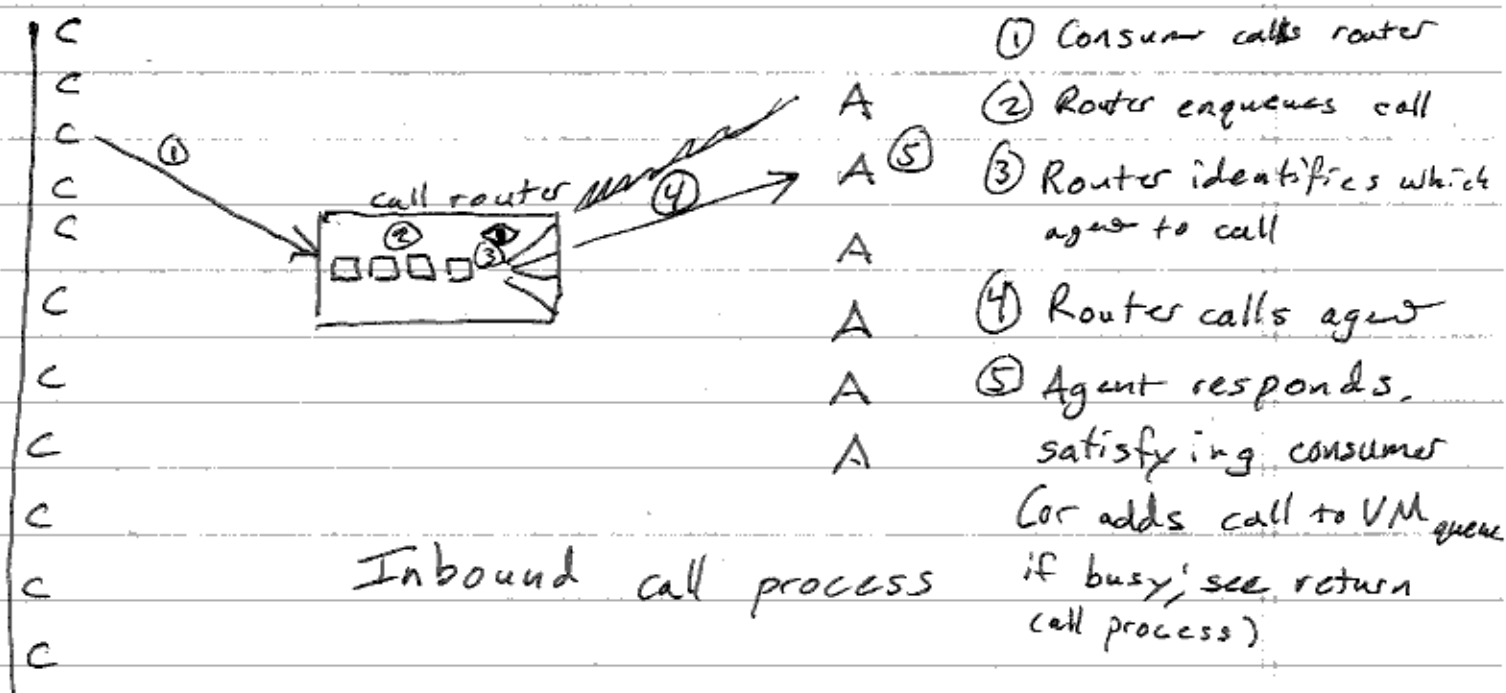 C
C
C
C
C
C
C
C
C
C
C
①
call router
②
③
④
A
A ⑤
A
A
A
A
Inbound call process
① Consumer calls router
② Router enqueues call
③ Router identifies which
agent to call
④ Router calls agent
⑤ Agent responds,
satisfying consumer
(or adds call to VM queue
if busy; see return
call process)